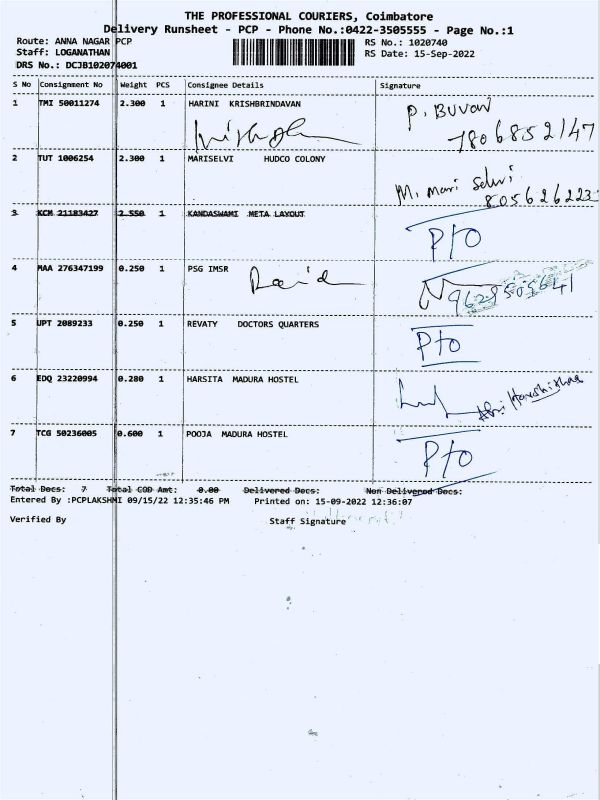 THE PROFESSIONAL COURIERS, Coimbatore
Delivery Runsheet - PCP - Phone No.:0422-3505555 - Page No.:1
Route: ANNA NAGAR PCP RS No.: 1020740
Staff: LOGANATHAN RS Date: 15-Sep-2022
DRS No.: DCJB102074001
S No Consignment No Weight PCS Consignee Details Signature
1 TMI 50011274 2.300 1 HARINI KRISHBRINDAVAN P. BUVAN
7806852147
2 TUT 1006254 2.300 1 MARISELVI HUDCO COLONY M. Mari Selvi
805626223
3 KCM 21183427 2.550 1 KANDASWAMI META LAYOUT
P/O
4 MAA 276347199 0.250 1 PSG IMSR
9629505641
5 UPT 2089233 0.250 1 REVATY DOCTORS QUARTERS
P/O
6 EDQ 23220994 0.280 1 HARSITA MADURA HOSTEL
7 TCG 50236005 0.600 1 POOJA MADURA HOSTEL
P/O
Total Docs: 7 Total COD Amt: 0.00 Delivered Docs: Non Delivered Docs:
Entered By :PCPLAKSHMI 09/15/22 12:35:46 PM Printed on: 15-09-2022 12:36:07
Verified By Staff Signature